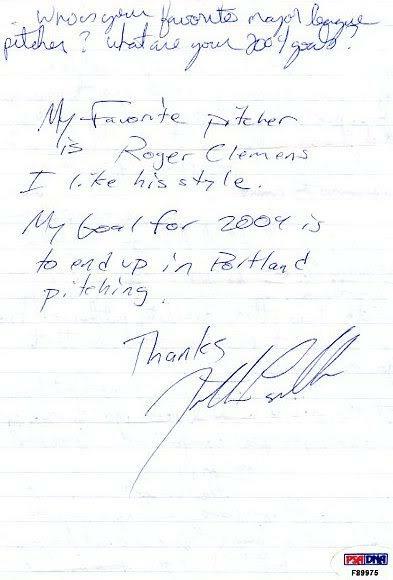 Who is your favorites major league
pitcher? What are your 2009 goals?
My Favorite pitcher
is Roger Clemens
I like his style.
My Goal for 2009 is
to end up in Portland
pitching.
Thanks
PSA DNA
F89975